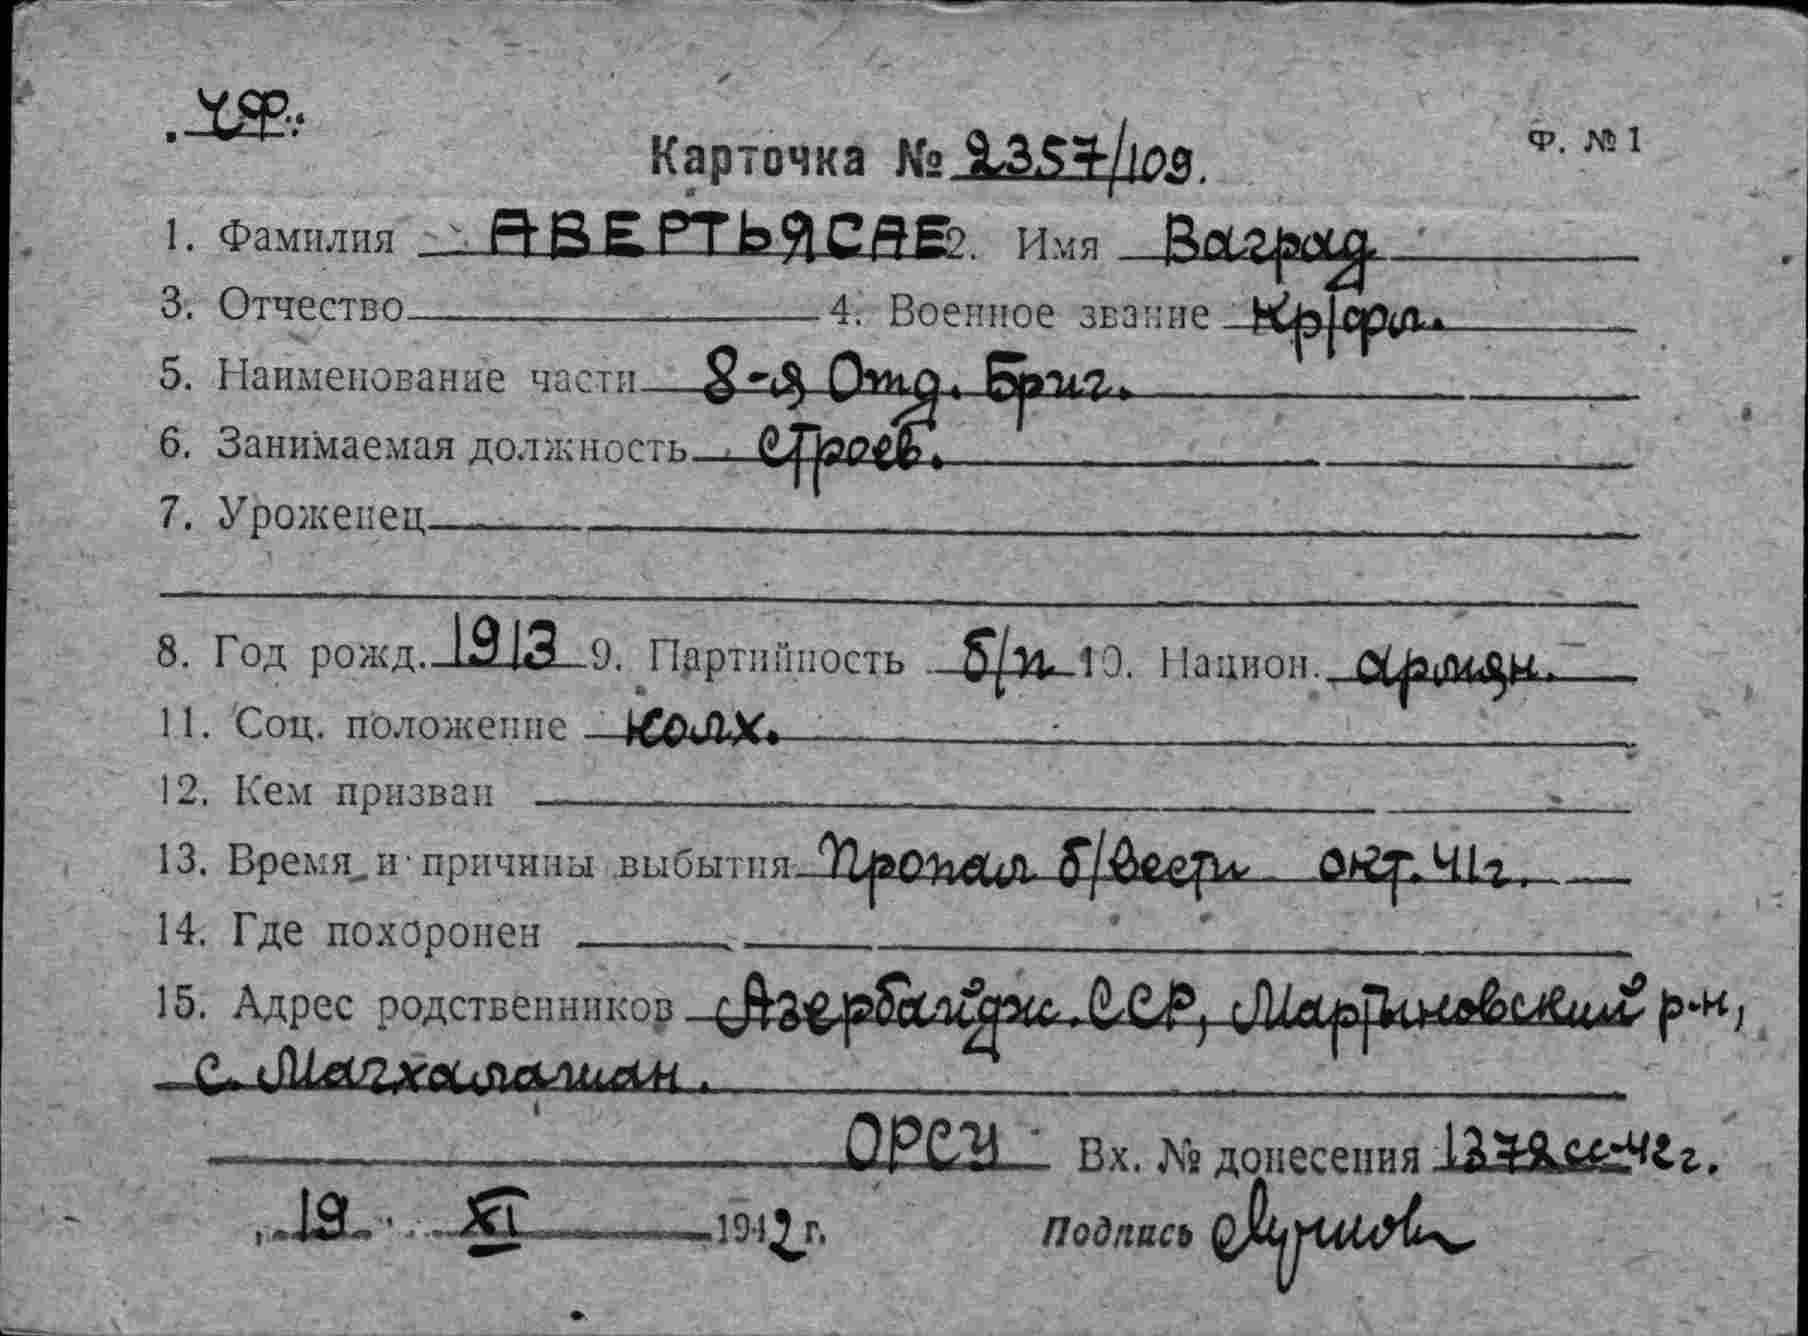 ЧФ.
Ф. № 1
Карточка № 2357/109.
1. Фамилия АВЕРТЬЯСАЕ 2. Имя Ваград
3. Отчество 4. Военное звание кр/фл.
5. Наименование части 8-я Отд. Бриг.
6. Занимаемая должность строев.
7. Уроженец
8. Год рожд. 1913 9. Партийность б/п 10. Национ. армян.
11. Соц. положение колх.
12. Кем призван
13. Время и причины выбытия Пропал б/вести окт. 41г.
14. Где похоронен
15. Адрес родственников Азербайдж. ССР, Мартыновский р-н,
с. Магхалашан.
ОРСУ Вх. № донесения 1372сс-42г.
19 XI 1942 г. Подпись